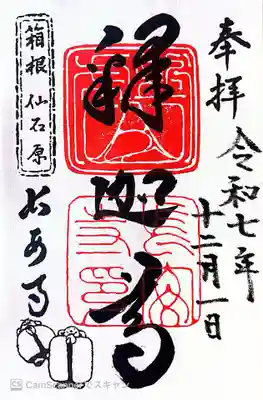 奉拝
令和七年
十二月一日
釋迦尊
箱根 仙石原
長安寺
CS CamScannerでスキャン